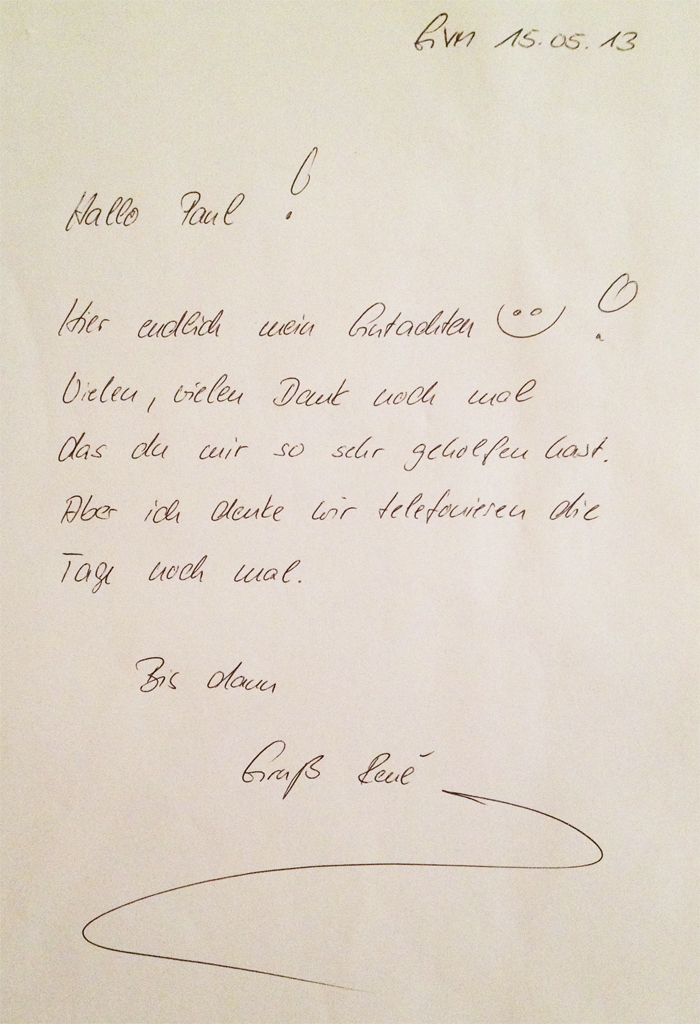 GVM 15.05.13
Hallo Paul!
Hier endlich mein Gutachten !
Vielen, vielen Dank noch mal
das du mir so sehr geholfen hast.
Aber ich denke wir telefonieren die
Tage noch mal.
Bis dann
Gruß René